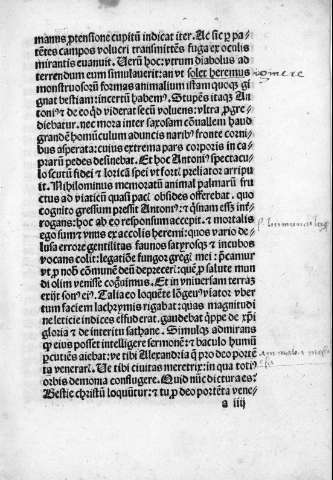 manus ꝓtensione cupitũ indicat iter. Ac sic ꝑ pa-
tẽtes campos volucri transmittẽs fuga ex oculis
mirantis euanuit. Uerũ hoc: vtrum diabolus ad
terrendum eum simulauerit: an vt solet heremus
monstruosoꝝ formas animalium istam quoqꝫ gi
gnat bestiam: incertũ habemꝰ. Stupẽs itaqꝫ An
toniꝰ ⁊ de eo qd̕ viderat secũ voluens: vltra ꝓgre-
diebatur. nec mora inter saxosam cõuallem haud
grandẽ homũculum aduncis naribꝰ fronte corni-
bus asperata: cuius extrema pars corporis in ca-
praꝝ pedes desinebat. Et hoc Antoniꝰ spectacu-
lo scutũ fidei ⁊ loricã spei vt fortꝭ preliator arripu
it. Nihilominus memoratũ animal palmaꝝ fru
ctus ad viaticũ quasi pacꝭ obsides offerebat. quo
cognito gressum pressit Antoniꝰ: ⁊ qͥsnam esset in
rogans: hoc ab eo responsum accepit. ⁊ mortalis
ego sum ⁊ vnus ex accolis heremi: quos vario de-
lusa errore gentilitas faunos satyrosqꝫ ⁊ incubos
vocans colit: legatiõe fungor gregꝭ mei: p̃camur
vt ꝓ nob̕ cõmunẽ deũ depreceꝭ: quẽ ꝓ salute mun
di olim venisse cog̃uimus. Et in vniuersam terrã
exijt sonꝰ eiꝰ. Talia eo loquẽte lõgeuꝰ viator vber
tum faciem lachrymis rigabat: quas magnitudi
ne leticie indices effuderat. gaudebat qͥppe de xp̃i
gloria ⁊ de interitu sathane. Simulqꝫ admirans
qͥ eius posset intelligere sermonẽ: ⁊ baculo humũ
ꝑcutiẽs aiebat: ve tibi Alexandria q̃ pro deo portẽ
ta veneraꝭ. Ue tibi ciuitas meretrix: in qua totiꝰ
orbis demonia confluxere. Quid nũc dictura es?
Bestie christũ loquũtur: ⁊ tu ꝓ deo portẽta vene-
a iiij